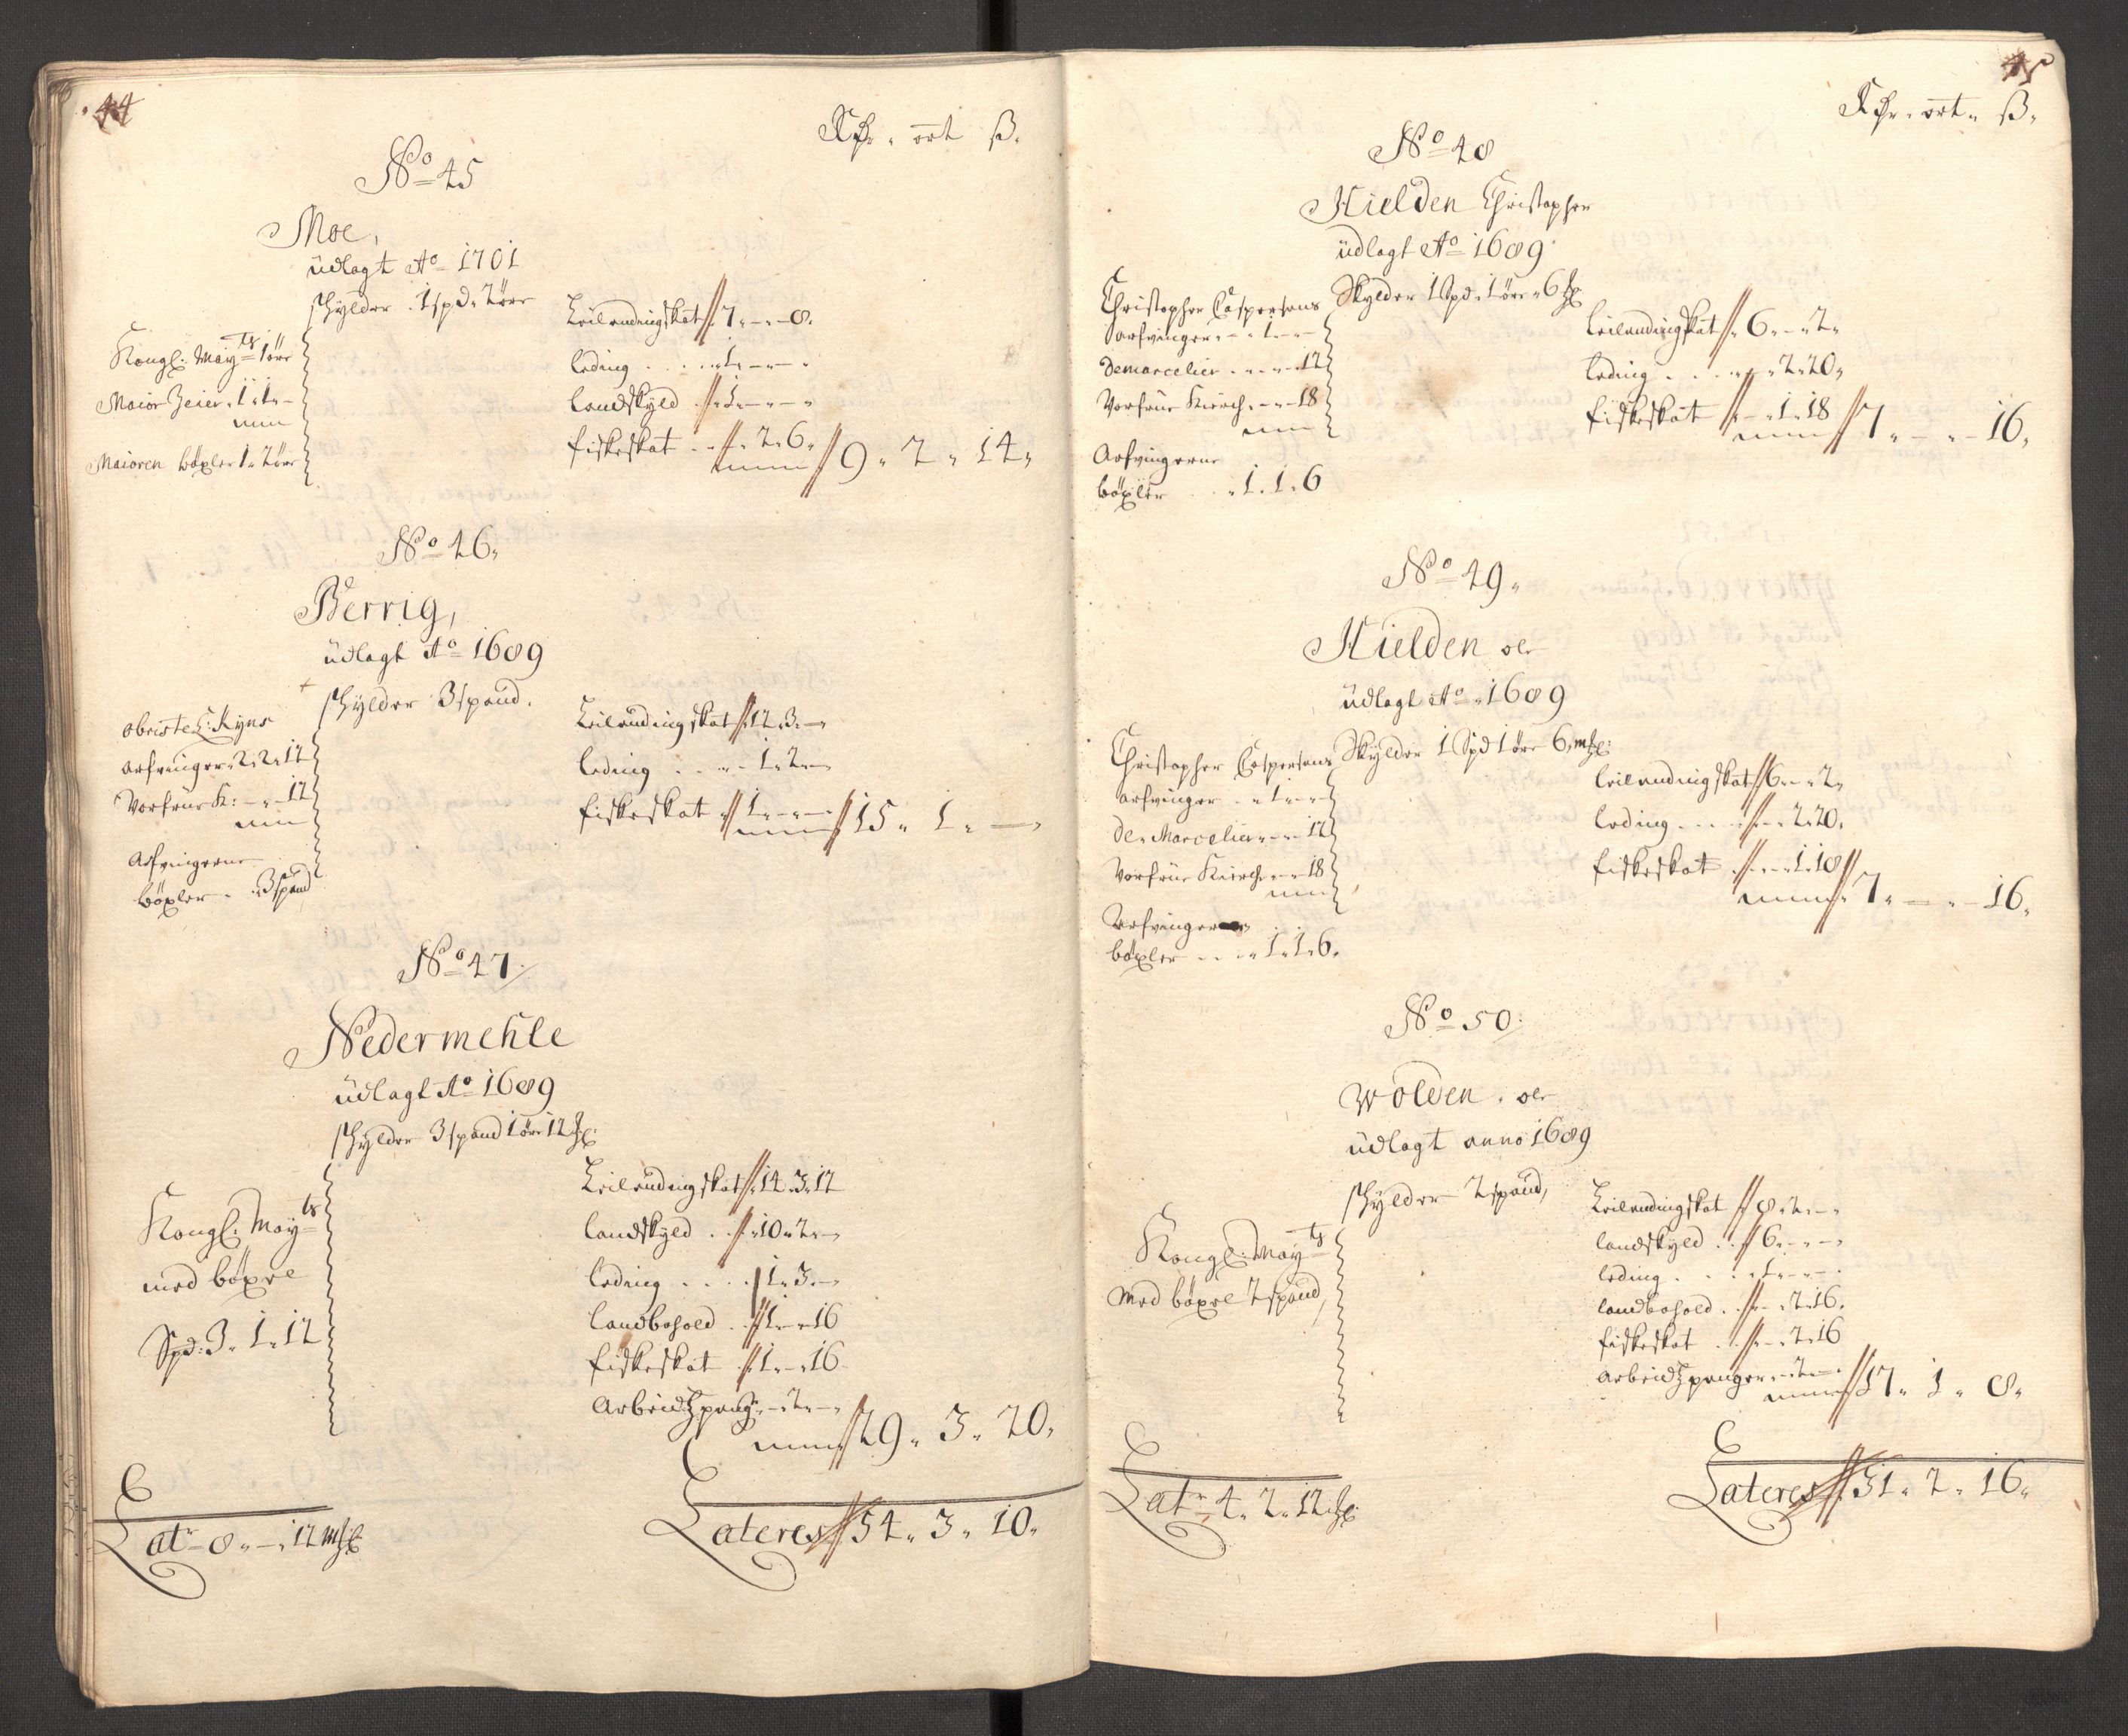 44
Rdr. ort ß.
No 45
Moe,
üdlagt Ao 1701
schylder 1 spd. 2 ører
Kongl: Mayts 1 öre
Maior Zeier 1 „ 1 „ –
Maioren böxler 1 „ 2 öre
Leilendingskat 7 „ – „ 8.
leding . . . 1 „ – „ –
landskyld . 1 „ – „ –
fiskeskat . . 2 „ 6 „ 9 „ 2 „ 14 „
No 46.
Berrig,
üdlagt Ao 1689
schylder 3 spand.
obriste L: Kyns
arfvinger 2 „ 2 „ 12
Vorfrue K: – „ – 12
Arfvingerne
böxler . 3 spand
Leilendingskat 12 „ 3 „ –
leding . . . 1 „ 2 „ –
fiskeskat 1 „ – „ – 15 „ 1 „ –
No 47.
Nedermehle
üdlagt Ao 1689
schylder 3 spand 1 öre 12 ml:
Kongl: Mayts
med böxel
Spd: 3 „ 1 „ 12
Leilendingskat 14 „ 3 „ 12
landskyld . . 10 „ 2 „ –
leding . . . 1 „ 3 „ –
landbohold . 1 „ – „ 16
fiskeskat . 1 „ – „ 16
Arbeidzpenge „ – 2 „ –
29 „ 3 „ 20.
Latr 8 „ – „ 12 ml
Lateres 54 „ 3 „ 10.
45
Rdr. ort. ß.
No 48
Hielden Christopher
üdlagt Ao 1689
Skylder 1 Spd 1 öre 6 ml
Christopher Caspersens
arfvinger . . 1 „ – „ –
Demarcelier . . . 12
Vorfrue Kirch . – „ – 18
Arfvingerne
böxler . . 1 „ 1 „ 6
Leilendingskat 6 „ – „ 2 „
leding . . . 2 „ 20 „
fiskeskat – „ 1 „ 18 7 „ – „ 16.
No 49.
Hielden ole
üdlagt Ao 1689
Skylder 1 Spd 1 öre 6 ml:
Christopher Caspersens
arfvinger . . 1 „ – „ –
De Marcelier – „ – 12
Vorfrue Kirch – „ – 18
Arfvingerne
böxler . . . 1 „ 1 „ 6.
Leilendingskat 6 „ – „ 2 „
leding . . . – „ 2 „ 20.
fiskeskat . – „ 1 „ 18
7 „ – „ 16.
No 50.
Wolden ole
üdlagt anno 1689
schylder 2 spand,
Kongl: Mayts
med böxel 2 spand,
Leilendingskat 8 „ 2 „ –
landskyld . . 6 „ – „ –
leding . . . 1 „ – „ –
landbohold . – „ 2 „ 16.
fiskeskat . – „ 2 „ 16
arbeidzpenger „ – 2 „ –
17 „ 1 „ 8.
Latr 4 „ 2 „ 12 ml
Lateres 31 „ 2 „ 16.